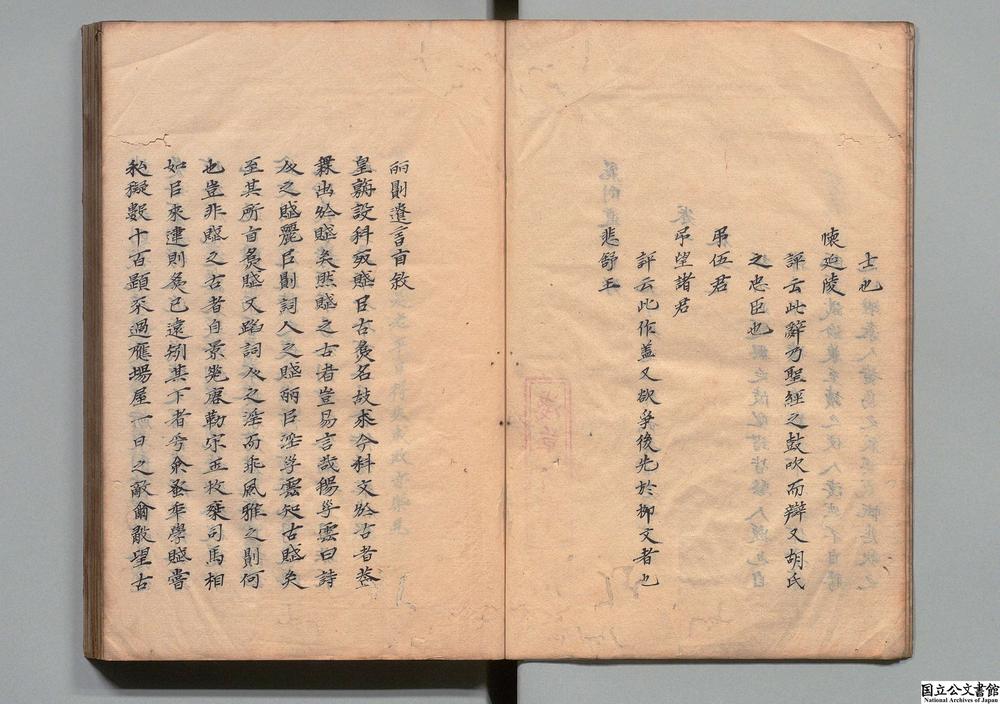 士也
懷延陵
評云此辭乃聖經之鼓吹而辯又胡氏
之忠臣也
吊伍君
吊望諸君
評云此作盖又欲爭後先於柳文者也
悲舒王
丽則遺言自敘
皇朝設科取賦㠯古爲名故求今科文於古者葢
無出於賦矣然賦之古者豈易言哉楊子雲曰詩
人之賦麗㠯則詞人之賦丽㠯淫子雲知古賦矣
至其所自爲賦又蹈詞人之淫而乖風雅之則何
也豈非賦之古者自景差唐勒宋玉枚乘司馬相
如㠯來違則爲已遠矧其下者乎余蚤年學賦嘗
私擬數十百題不過應場屋一日之敵爾敢望古